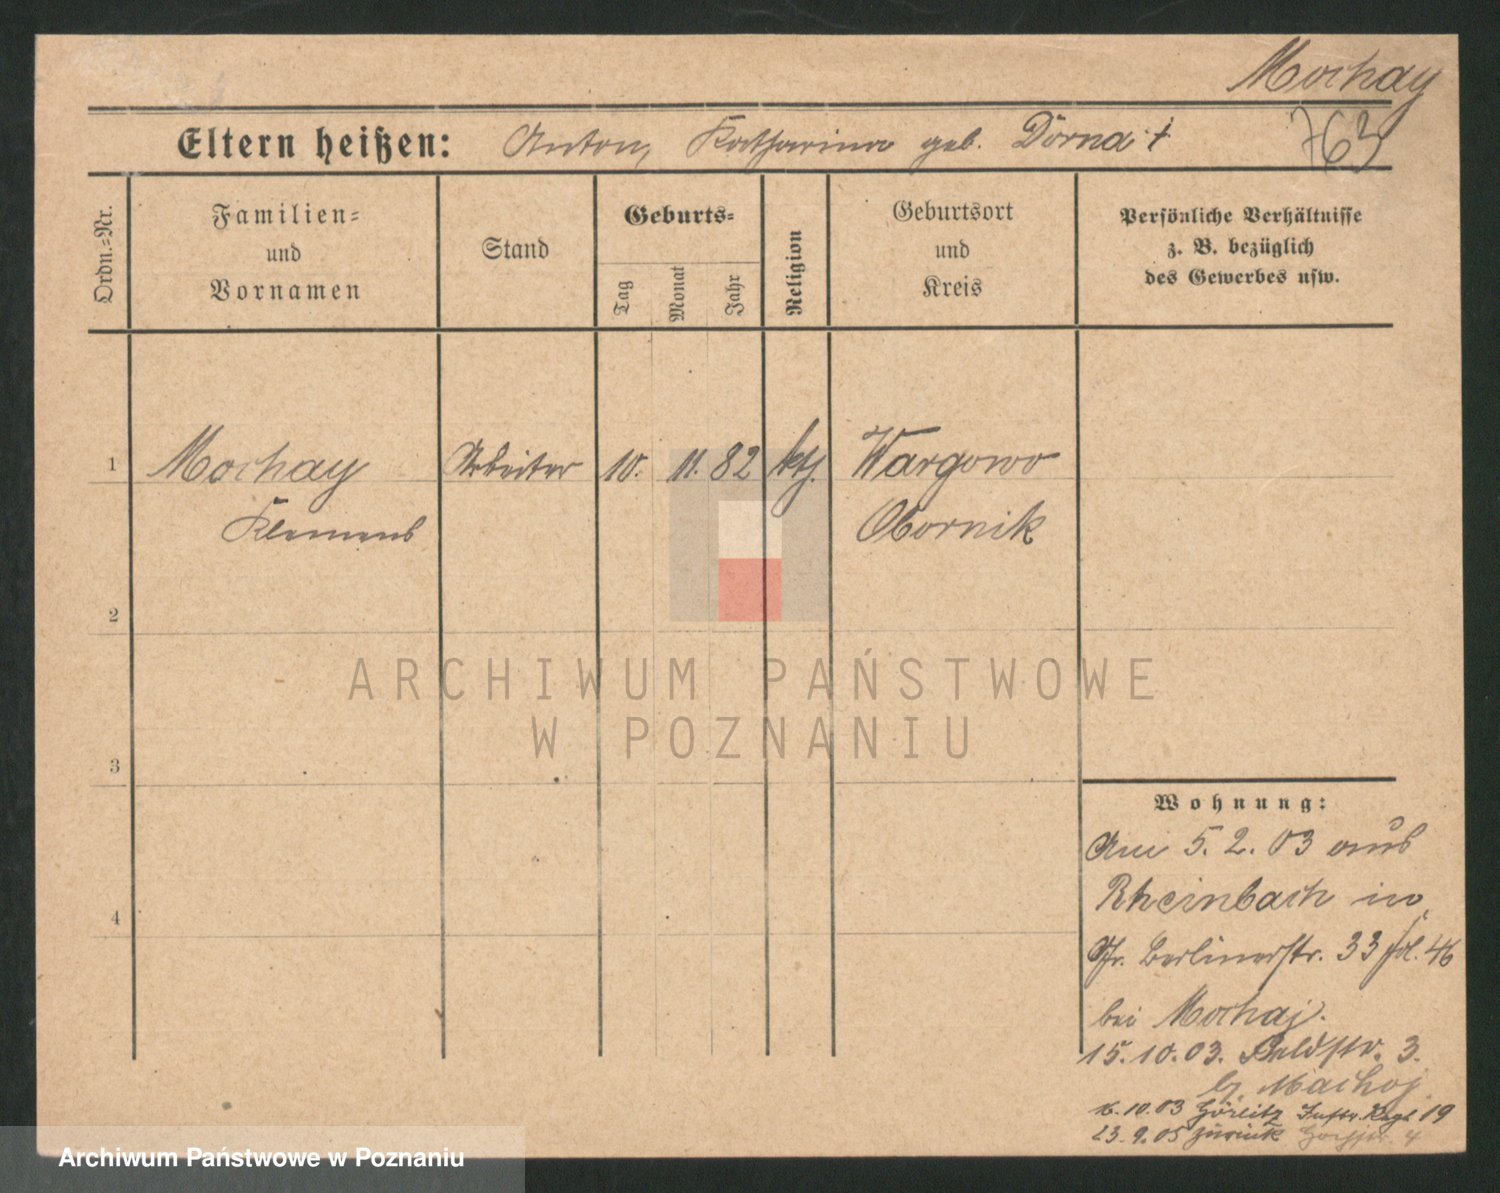 Mochay
Eltern heißen: Anton, Katharina geb. Dorna †
763
Ordn.=Nr.
Familien=
und
Vornamen
Stand
Geburts=
Tag
Monat
Jahr
Religion
Geburtsort
und
Kreis
Persönliche Verhältnisse
z. B. bezüglich
des Gewerbes usw.
1 Mochay Arbeiter 10. 11. 82 kth. Wargowo
Klemens Obornik
2
3
4
Wohnung:
Am 5. 2. 03 aus
Rheinbach in
Berlinerstr. 33 46
bei Mochaj.
15. 10. 03. Feldstr. 3.
b. Machoj
16. 10. 03 Görlitz Inftr. Regt 19
23. 9. 05 zurück 4
ARCHIWUM PAŃSTWOWE
W POZNANIU
Archiwum Państwowe w Poznaniu